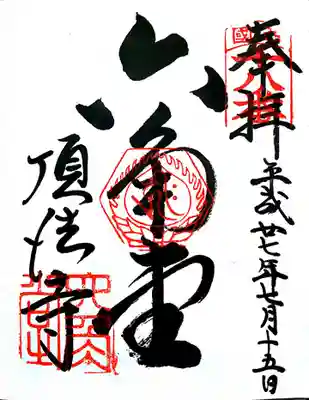 奉拝
平成廿七年七月十五日
六角堂
頂法寺